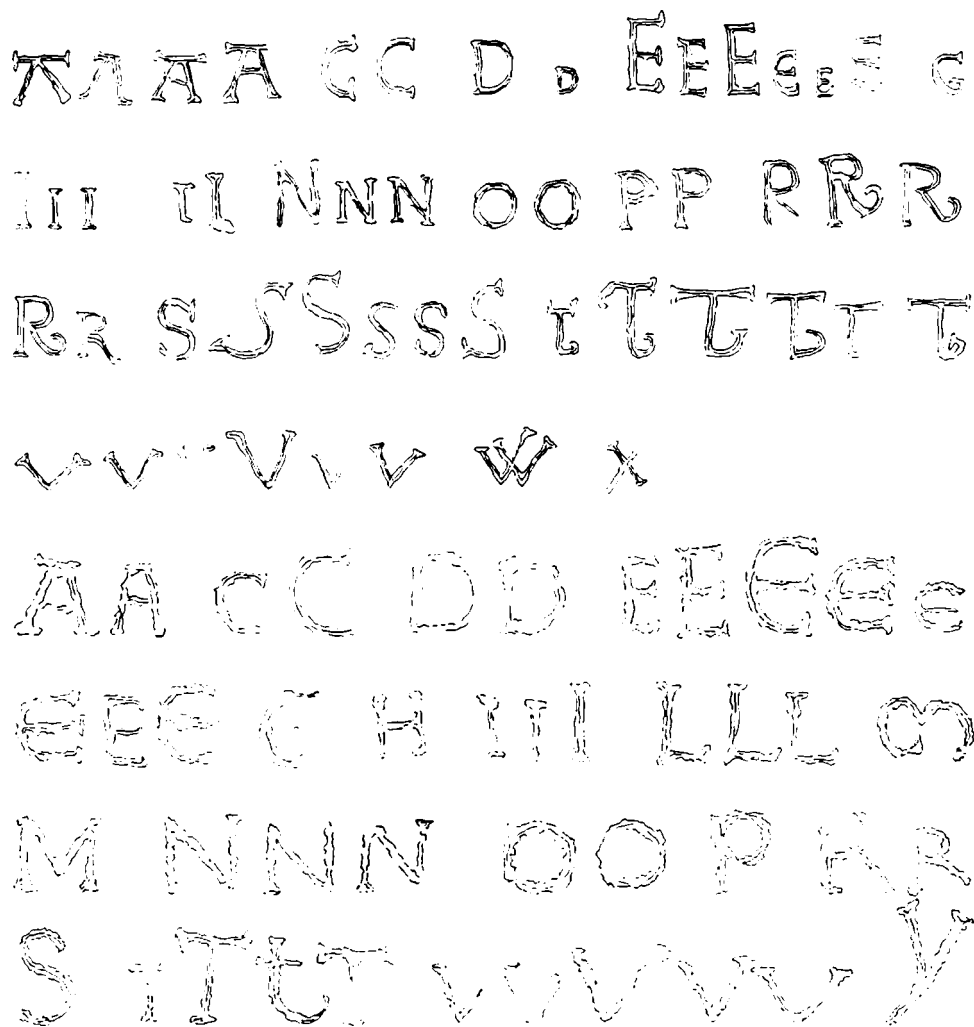 A A A A C C D D E E E E E E G
I I I I L N N N O O P P R R R
R R S S S S S S T T T T T T
V V V V V V W X
A A C C D D E E E E E
E E E C H I I I L L L M
M N N N O O P R R
S T T T T V V V V V Y